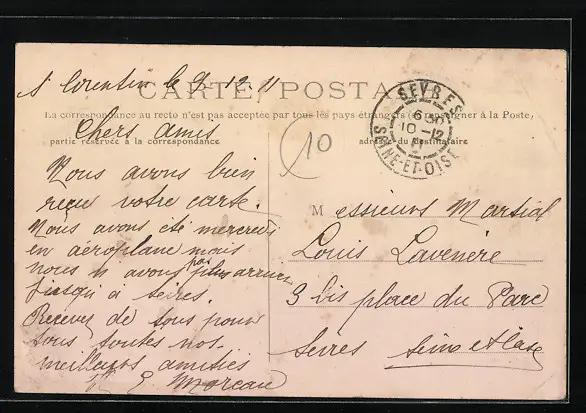 St Corentin le 9-12-11
CARTE POSTALE
La correspondance au recto n'est pas acceptée par tous les pays étrangers (se renseigner à la Poste)
partie réservée à la correspondance
adresse du destinataire
SEVRES
6 30
10-12
11
SEINE-ET-OISE
10
Chers amis
Nous avons bien
reçu votre carte.
Nous avons été mercredi
en aéroplane mais
nous n avons pas plus arriver
jusqu'à Sèvres.
Recevez de tous pour
tous toutes nos
meilleures amitiés
Moreau
Messieurs Martial
Louis Lavenère
9 bis place du Parc
Sevres Seine et Oise